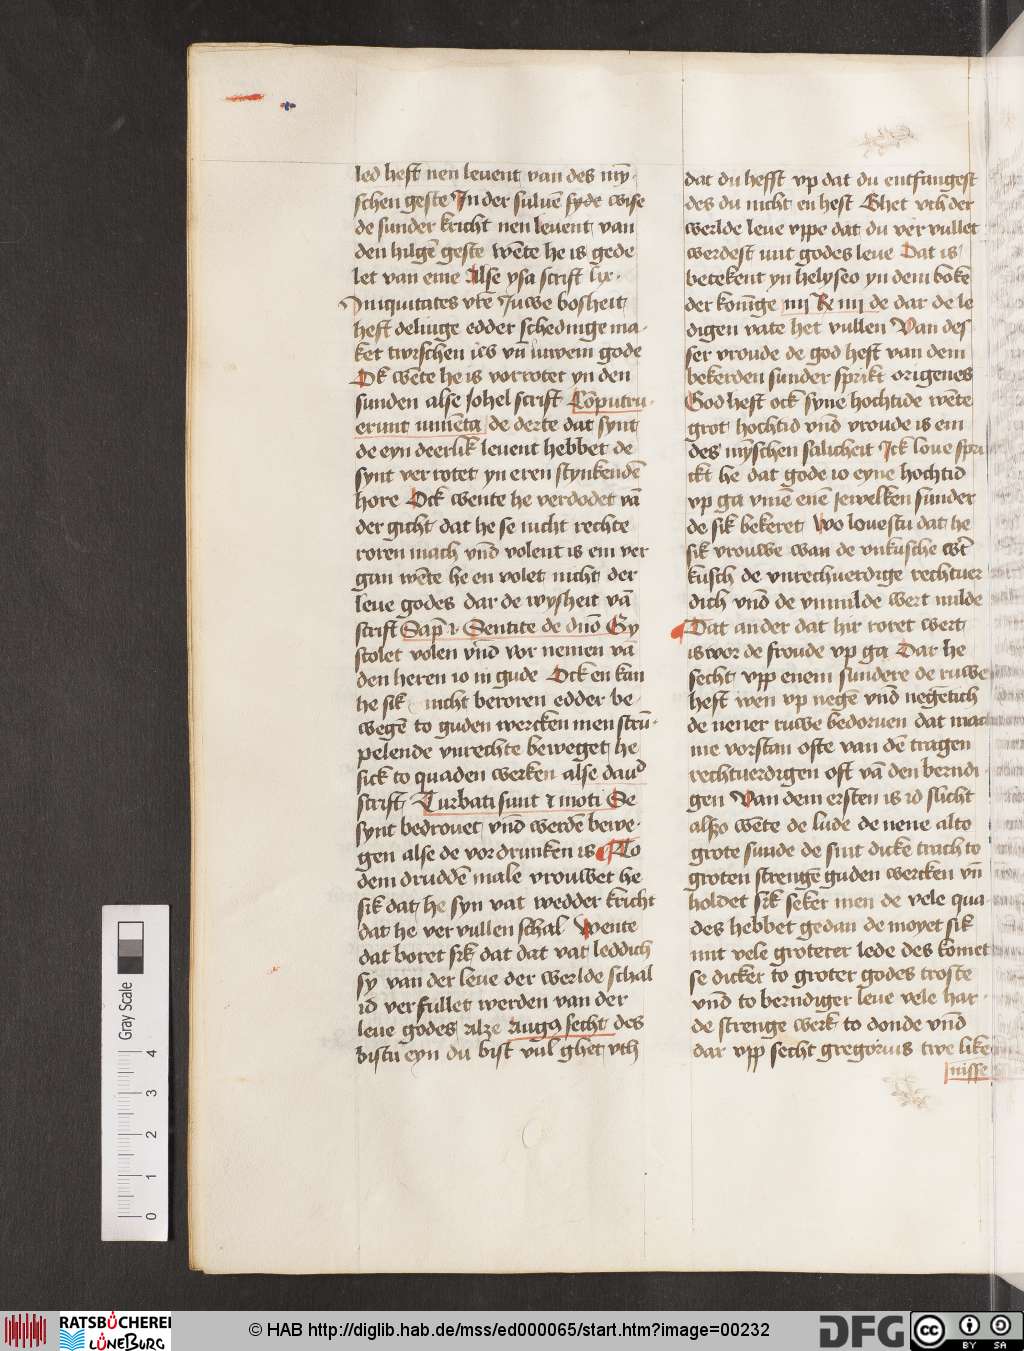 led heft nen leuent van des mȳ-
schen geste In der suluē syde wise
de sunder kricht nen leuent van
den hilgē geste wēte he is gede
let van eme Alse ysa scrift lix.
Iniquitates vr̄e Juwe bosheit
heft delinge edder schedinge ma-
ket twischen iw vn̄ iuwem gode
Ok wēte he is vorrotet yn den
sunden alse Johel scrift Cōputru-
erunt iumēta de derte dat synt
de eyn deerlik leuent hebbet de
synt ver rotet yn eren stynkendē
hore Ock wente he verdodet vā
der gicht dat he se nicht rechte
roren mach vnd volent is em ver
gan wēte he en volet nicht der
leue godes dar de wysheit vā
scrift Sap̄ i. Sentite de dn̄o Gy
scolet volen vnd vor nemen vā
den heren io in gude Ock en kan
he sik nicht beroren edder be-
wegē to guden wercken men strū-
pelende vnrechte beweget he
sick to quaden werken alse dauid
scrift Turbati sunt & moti Se
synt bedrouet vnd werdē bewe-
gen alse de vordrunken is To
dem druddē male vrouwet he
sik dat he syn vat wedder kricht
dat he ver vullen schal Wente
dat boret sik dat dat vat leddich
sy van der leue der werlde schal
id verfullet werden van der
leue godes alze Augꝰ secht des
bistu eyn du bist vul ghet vth
dat du hefft vp dat du entfangest
des du nicht en hest Ghet vth der
werlde leue vppe dat du ver vullet
werdest mit godes leue Dat is
betekent yn helyseo yn dem bōke
der konīge iiij Re iiij de dar de le
digen vate het vullen Van des
ser vroude de god heft van dem
bekerden sunder sprikt origenes
God heft ock syne hochtide wēte
grot hochtid vnd vroude is em
des mȳschen salicheit Ick loue spri
ckt he dat gode io eyne hochtid
vp ga vmē enē jewelken sunder
de sik bekeret wo louestu dat he
sik vrouwe wan de vnkusche wert
kusch de vnrechuerdige rechtuer
dich vnd de vnmilde wert milde
Dat ander dat hir roret wert
is wor de froude vp ga Dar he
secht vpp enem sundere de ruwe
heft wen vp negē vnd negetich
de nener ruwe bedoruen dat mach
me vorstan ofte van dē tragen
rechtuerdigen oft vā den berndi-
gen Van dem ersten is id slicht
alßo wēte de lude de nene alto
grote sunde de sint dicke trach to
groten strengē guden wercken vn̄
holdet sik seker men de vele qua-
des hebbet gedan de moyet sik
mit vele groterer lede des komet
se dicker to groter godes troste
vnd to berndiger leue vele har-
de strenge werk to donde vnd
dar vpp secht gregorius twe like
nisse
Gray Scale
4
3
2
1
0
RATSBÜCHEREI
LÜNEBURG
© HAB http://diglib.hab.de/mss/ed000065/start.htm?image=00232
DFG
cc
BY SA